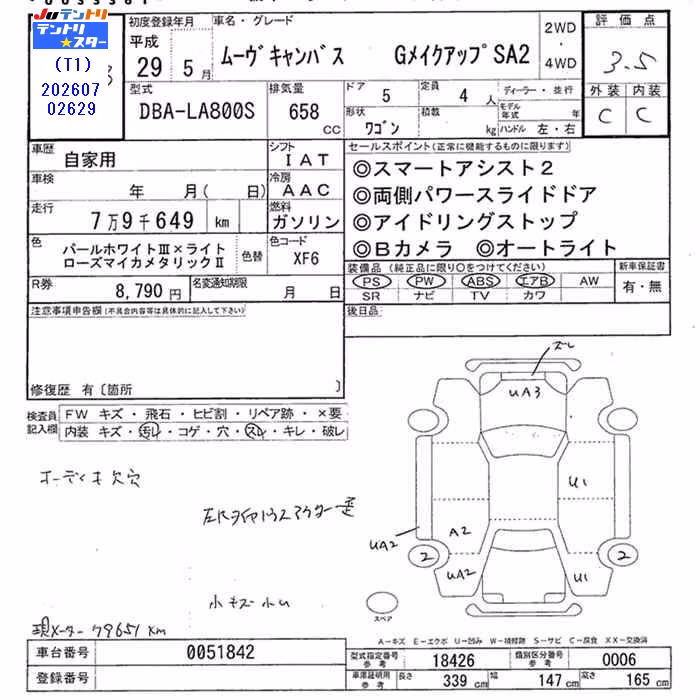 Juテントリ
テントリ
★スター
(T1)
202607
02629
初度登録年月
平成
29年5月
車名・グレード
ムーヴキャンバス GメイクアップSA2
2WD
・
4WD
評価点
3.5
外装 内装
C C
型式
DBA-LA800S
排気量
658
cc
ドア
5
定員
4人
形状
ワゴン
積載
kg
ディーラー・並行
モデル
年式
年
ハンドル 左・右
車歴
自家用
シフト
IAT
車検
年 月( 日)
冷房
AAC
走行
7万9千649 km
燃料
ガソリン
色
パールホワイトⅢ×ライト
ローズマイカメタリックⅡ
色替
色コード
XF6
R券
8,790円
名変通知期限
月 日
セールスポイント(正常に機能するものに限ります)
◎スマートアシスト2
◎両側パワースライドドア
◎アイドリングストップ
◎Bカメラ ◎オートライト
装備品(純正品に限り○をつけてください)
PS PW ABS エアB AW
SR ナビ TV カワ
新車保証書
有・無
後日品
注意事項申告欄(不具合内容等は具体的に記入して下さい)
修復歴 有〔箇所 〕
検査員
記入欄
FW キズ・飛石・ヒビ割・リペア跡・×要
内装 キズ・汚レ・コゲ・穴・スレ・キレ・破レ
オーディオ欠穴
小キズ小U
現メーター79651km
スレ
UA3
U1
A2
UA2
2
2
UA2
U1
スペア
A-キズ E-エクボ U-凹み W-補修跡 S-サビ C-腐食 XX-交換済
車台番号
0051842
登録番号
型式指定番号
参考
18426
類別区分番号
参考
0006
車庫証明用
参考
長さ
339 cm
幅
147 cm
高さ
165 cm